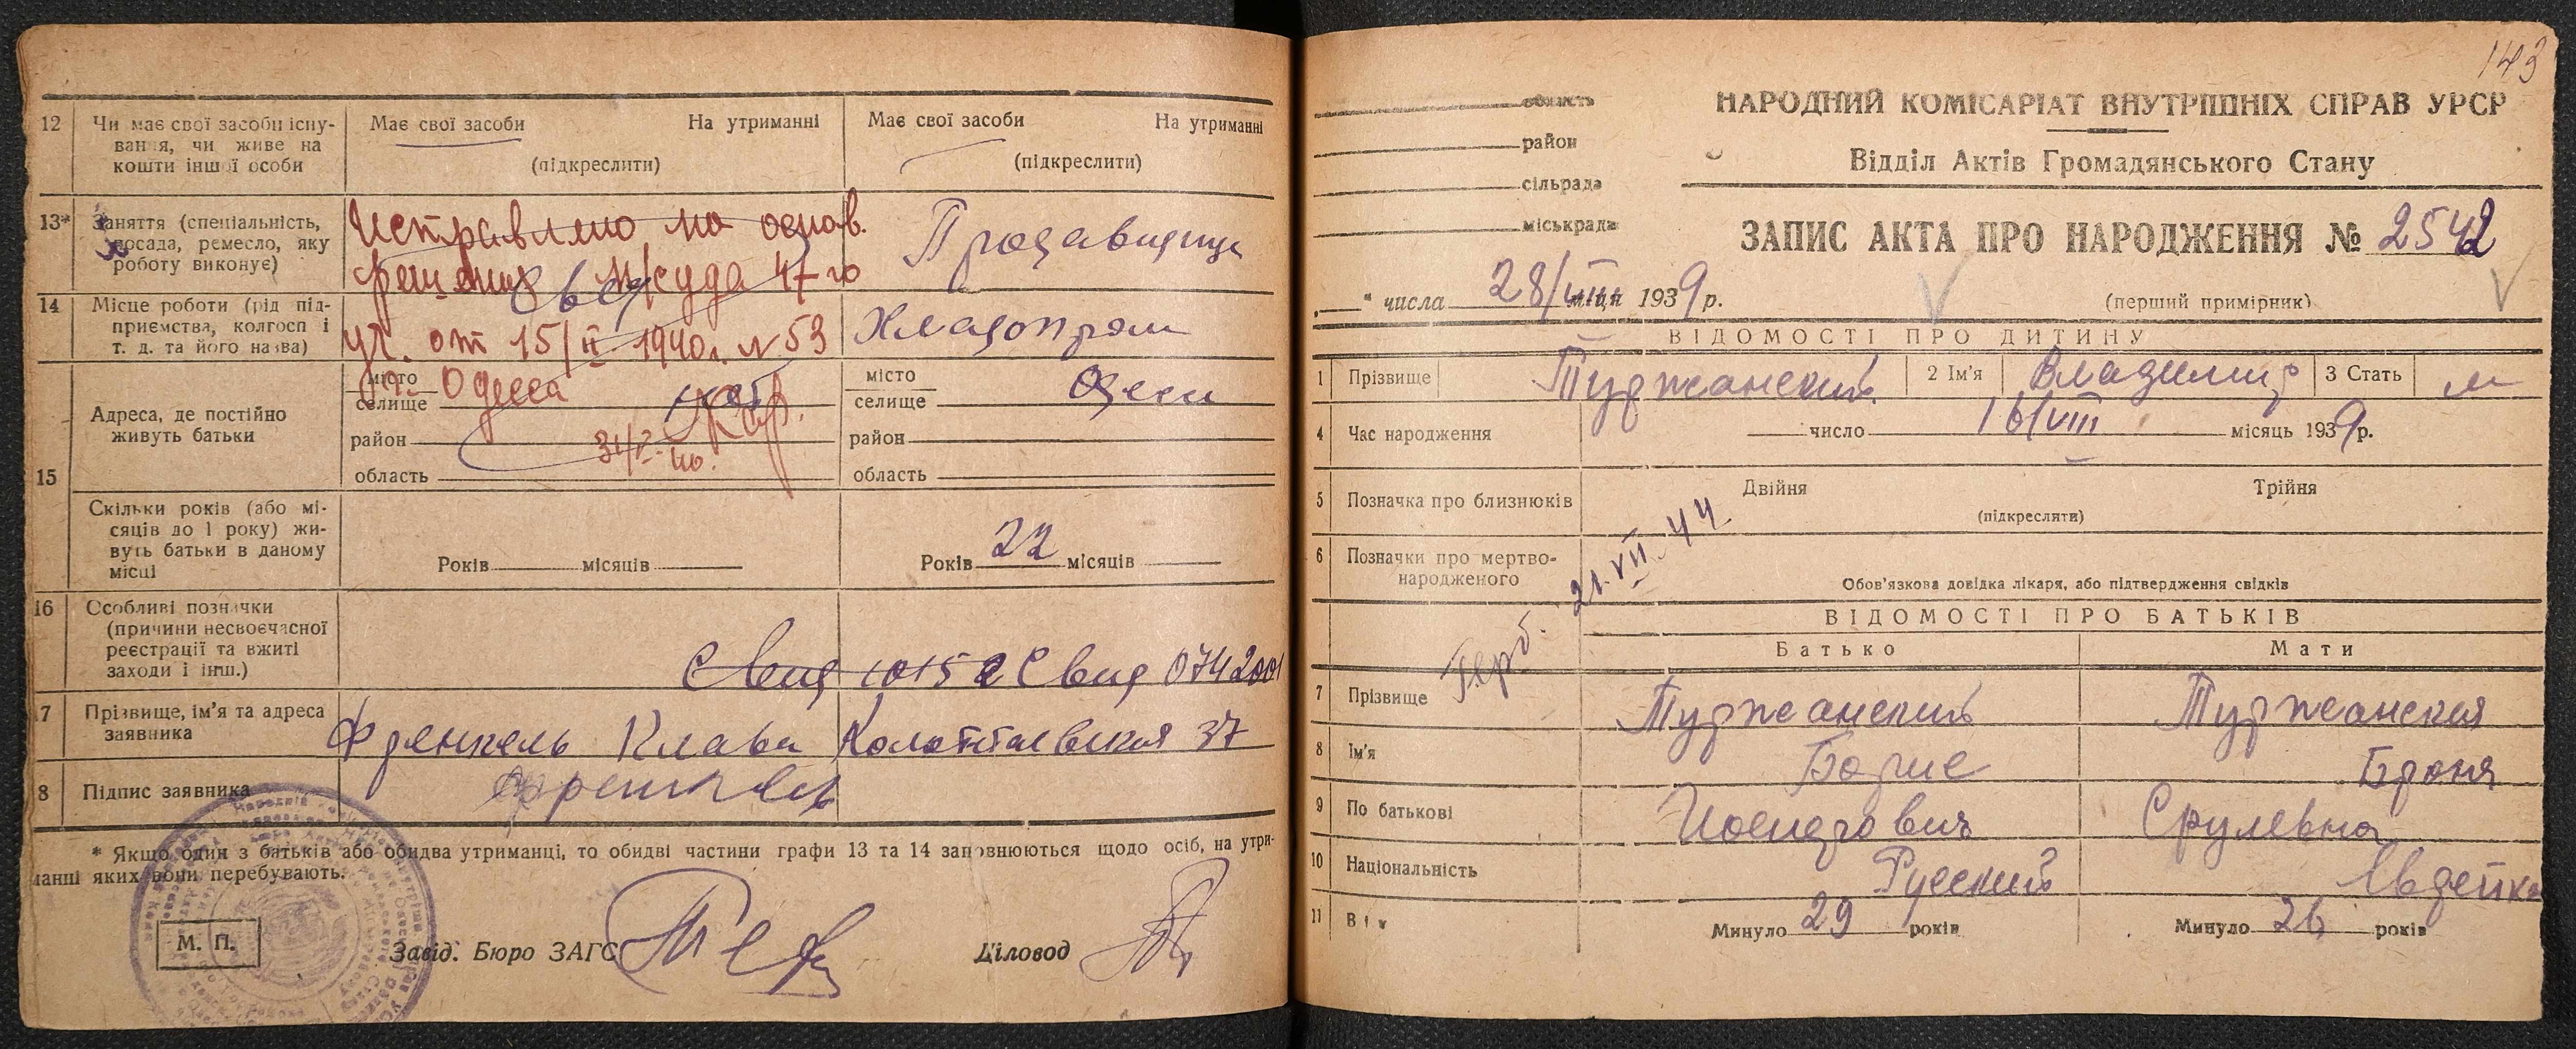 12 Чи має свої засоби існу-
вання, чи живе на
кошти іншої особи
Має свої засоби На утриманні
(підкреслити)
Має свої засоби На утриманні
(підкреслити)
13* Заняття (спеціальність,
посада, ремесло, яку
роботу виконує)
Исправлено на основ.
решения н/суда 47-го
Продавщица
14 Місце роботи (рід під-
приємства, колгосп і
т. д. та його назва)
уч. от 15/II 1940г. N 53
Хладопром
15 Адреса, де постійно
живуть батьки
місто
селище
район
область
г. Одесса
31/
40.
місто
селище
район
область
Одесса
Скільки років (або мі-
сяців до 1 року) жи-
вуть батьки в даному
місці
Років місяців
Років 22 місяців
16 Особливі позначки
(причини несвоєчасної
реєстрації та вжиті
заходи і інш.)
Свид 10152 Свид 0742001
17 Прізвище, ім'я та адреса
заявника
Френкель Клава Колонтаевская 37
8 Підпис заявника
Френкель
* Якщо один з батьків або обидва утриманці, то обидві частини графи 13 та 14 заповнюються щодо осіб, на утри-
манні яких вони перебувають.
М. П.
Завід. Бюро ЗАГС
Діловод
143
область
район
сільрада
міськрада
НАРОДНИЙ КОМІСАРІАТ ВНУТРІШНІХ СПРАВ УРСР
Відділ Актів Громадянського Стану
ЗАПИС АКТА ПРО НАРОДЖЕННЯ № 2542
" числа 28/VIII місяця 1939 р.
(перший примірник)
ВІДОМОСТІ ПРО ДИТИНУ
1 Прізвище Туржанский 2 Ім'я Владимир 3 Стать м
4 Час народження число 16/VIII місяць 1939 р.
5 Позначка про близнюків Двійня Трійня
(підкреслити)
6 Позначки про мертво-
народженого
Обов'язкова довідка лікаря, або підтвердження свідків
Герб. 21.VII.44
ВІДОМОСТІ ПРО БАТЬКІВ
Батько Мати
7 Прізвище Туржанский Туржанская
8 Ім'я Борис Броня
9 По батькові Срулевна
10 Національність Русский Еврейка
11 Вік Минуло 29 років Минуло 26 років